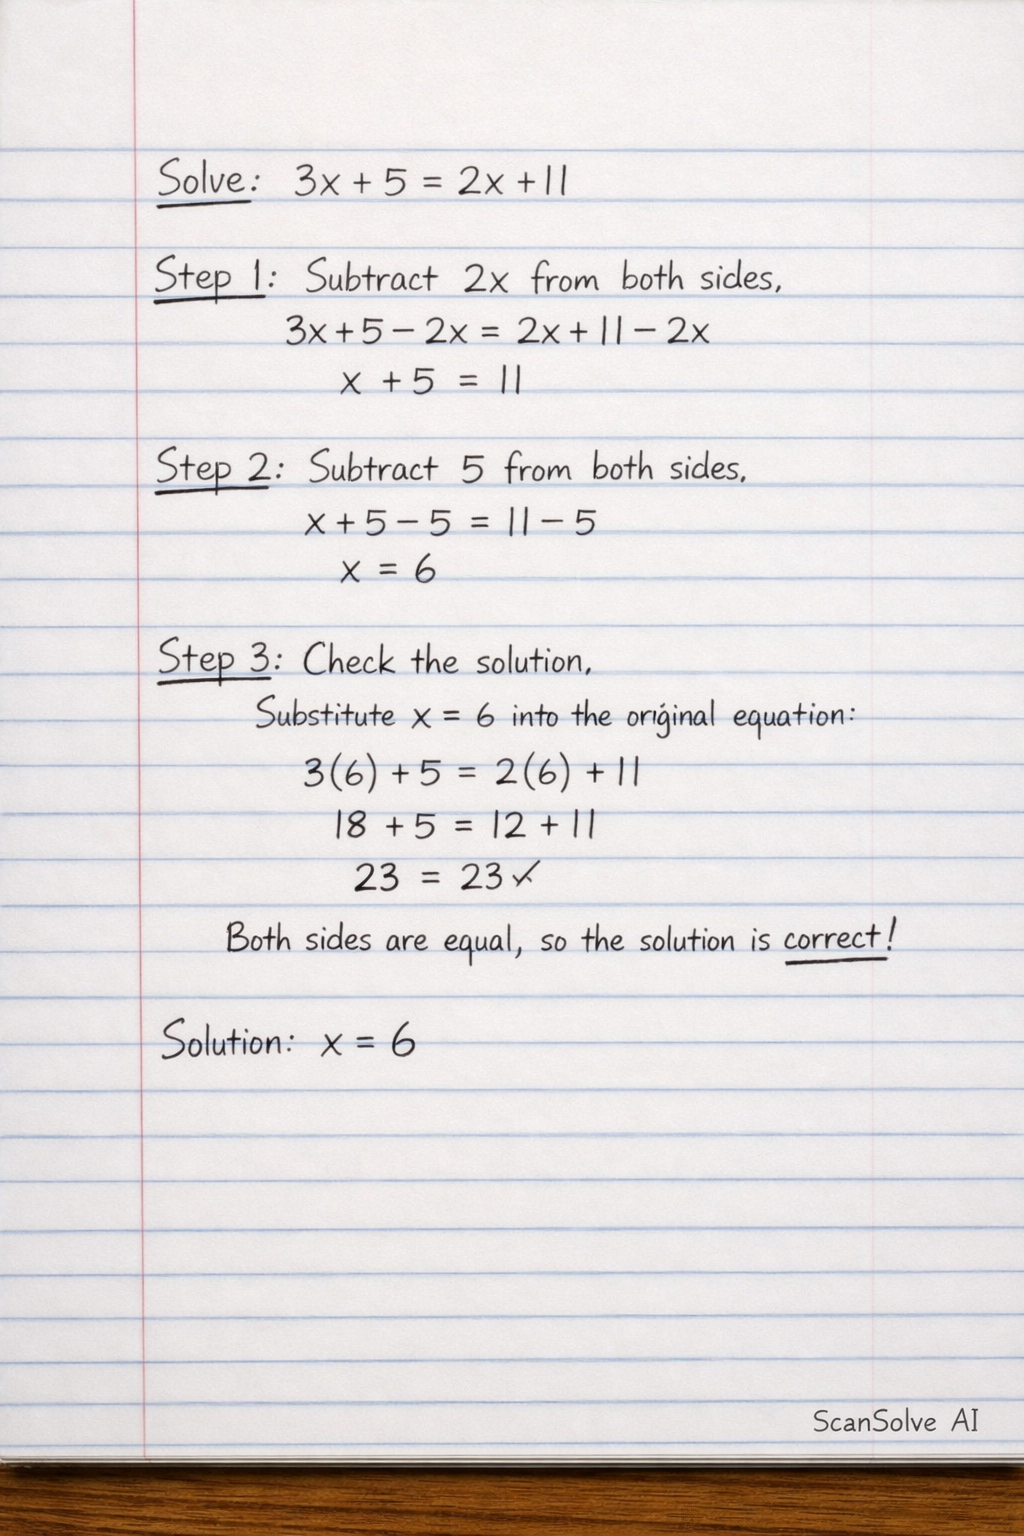 Solve: 3x + 5 = 2x + 11
Step 1: Subtract 2x from both sides,
3x + 5 − 2x = 2x + 11 − 2x
x + 5 = 11
Step 2: Subtract 5 from both sides,
x + 5 − 5 = 11 − 5
x = 6
Step 3: Check the solution,
Substitute x = 6 into the original equation:
3(6) + 5 = 2(6) + 11
18 + 5 = 12 + 11
23 = 23 ✓
Both sides are equal, so the solution is correct!
Solution: x = 6
ScanSolve AI